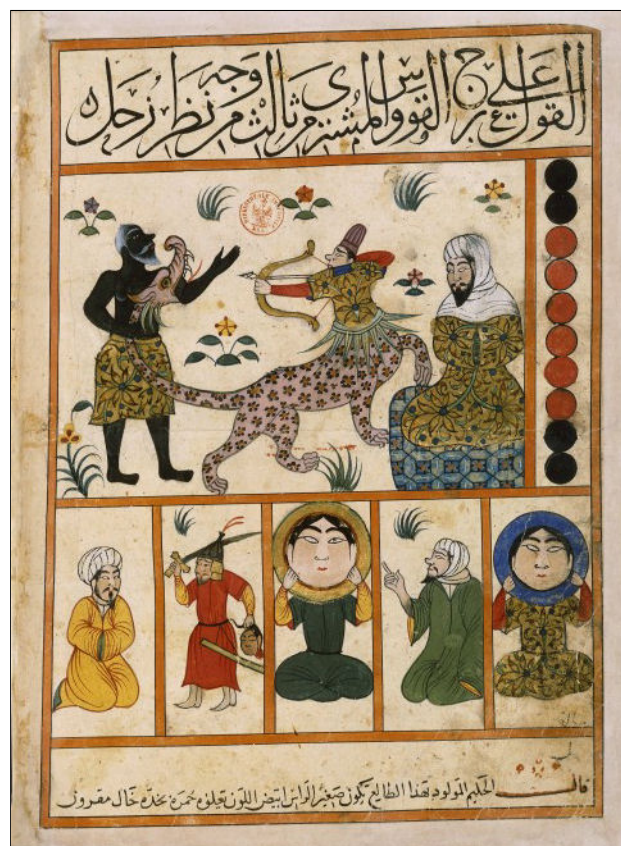 القول على برج القوس والمشتري ثالث وجه من نظر زحل
قال الحكيم المولود بهذا الطالع يكون صغير الراس ابيض اللون تعلوه حمرة بخده خال مقرون